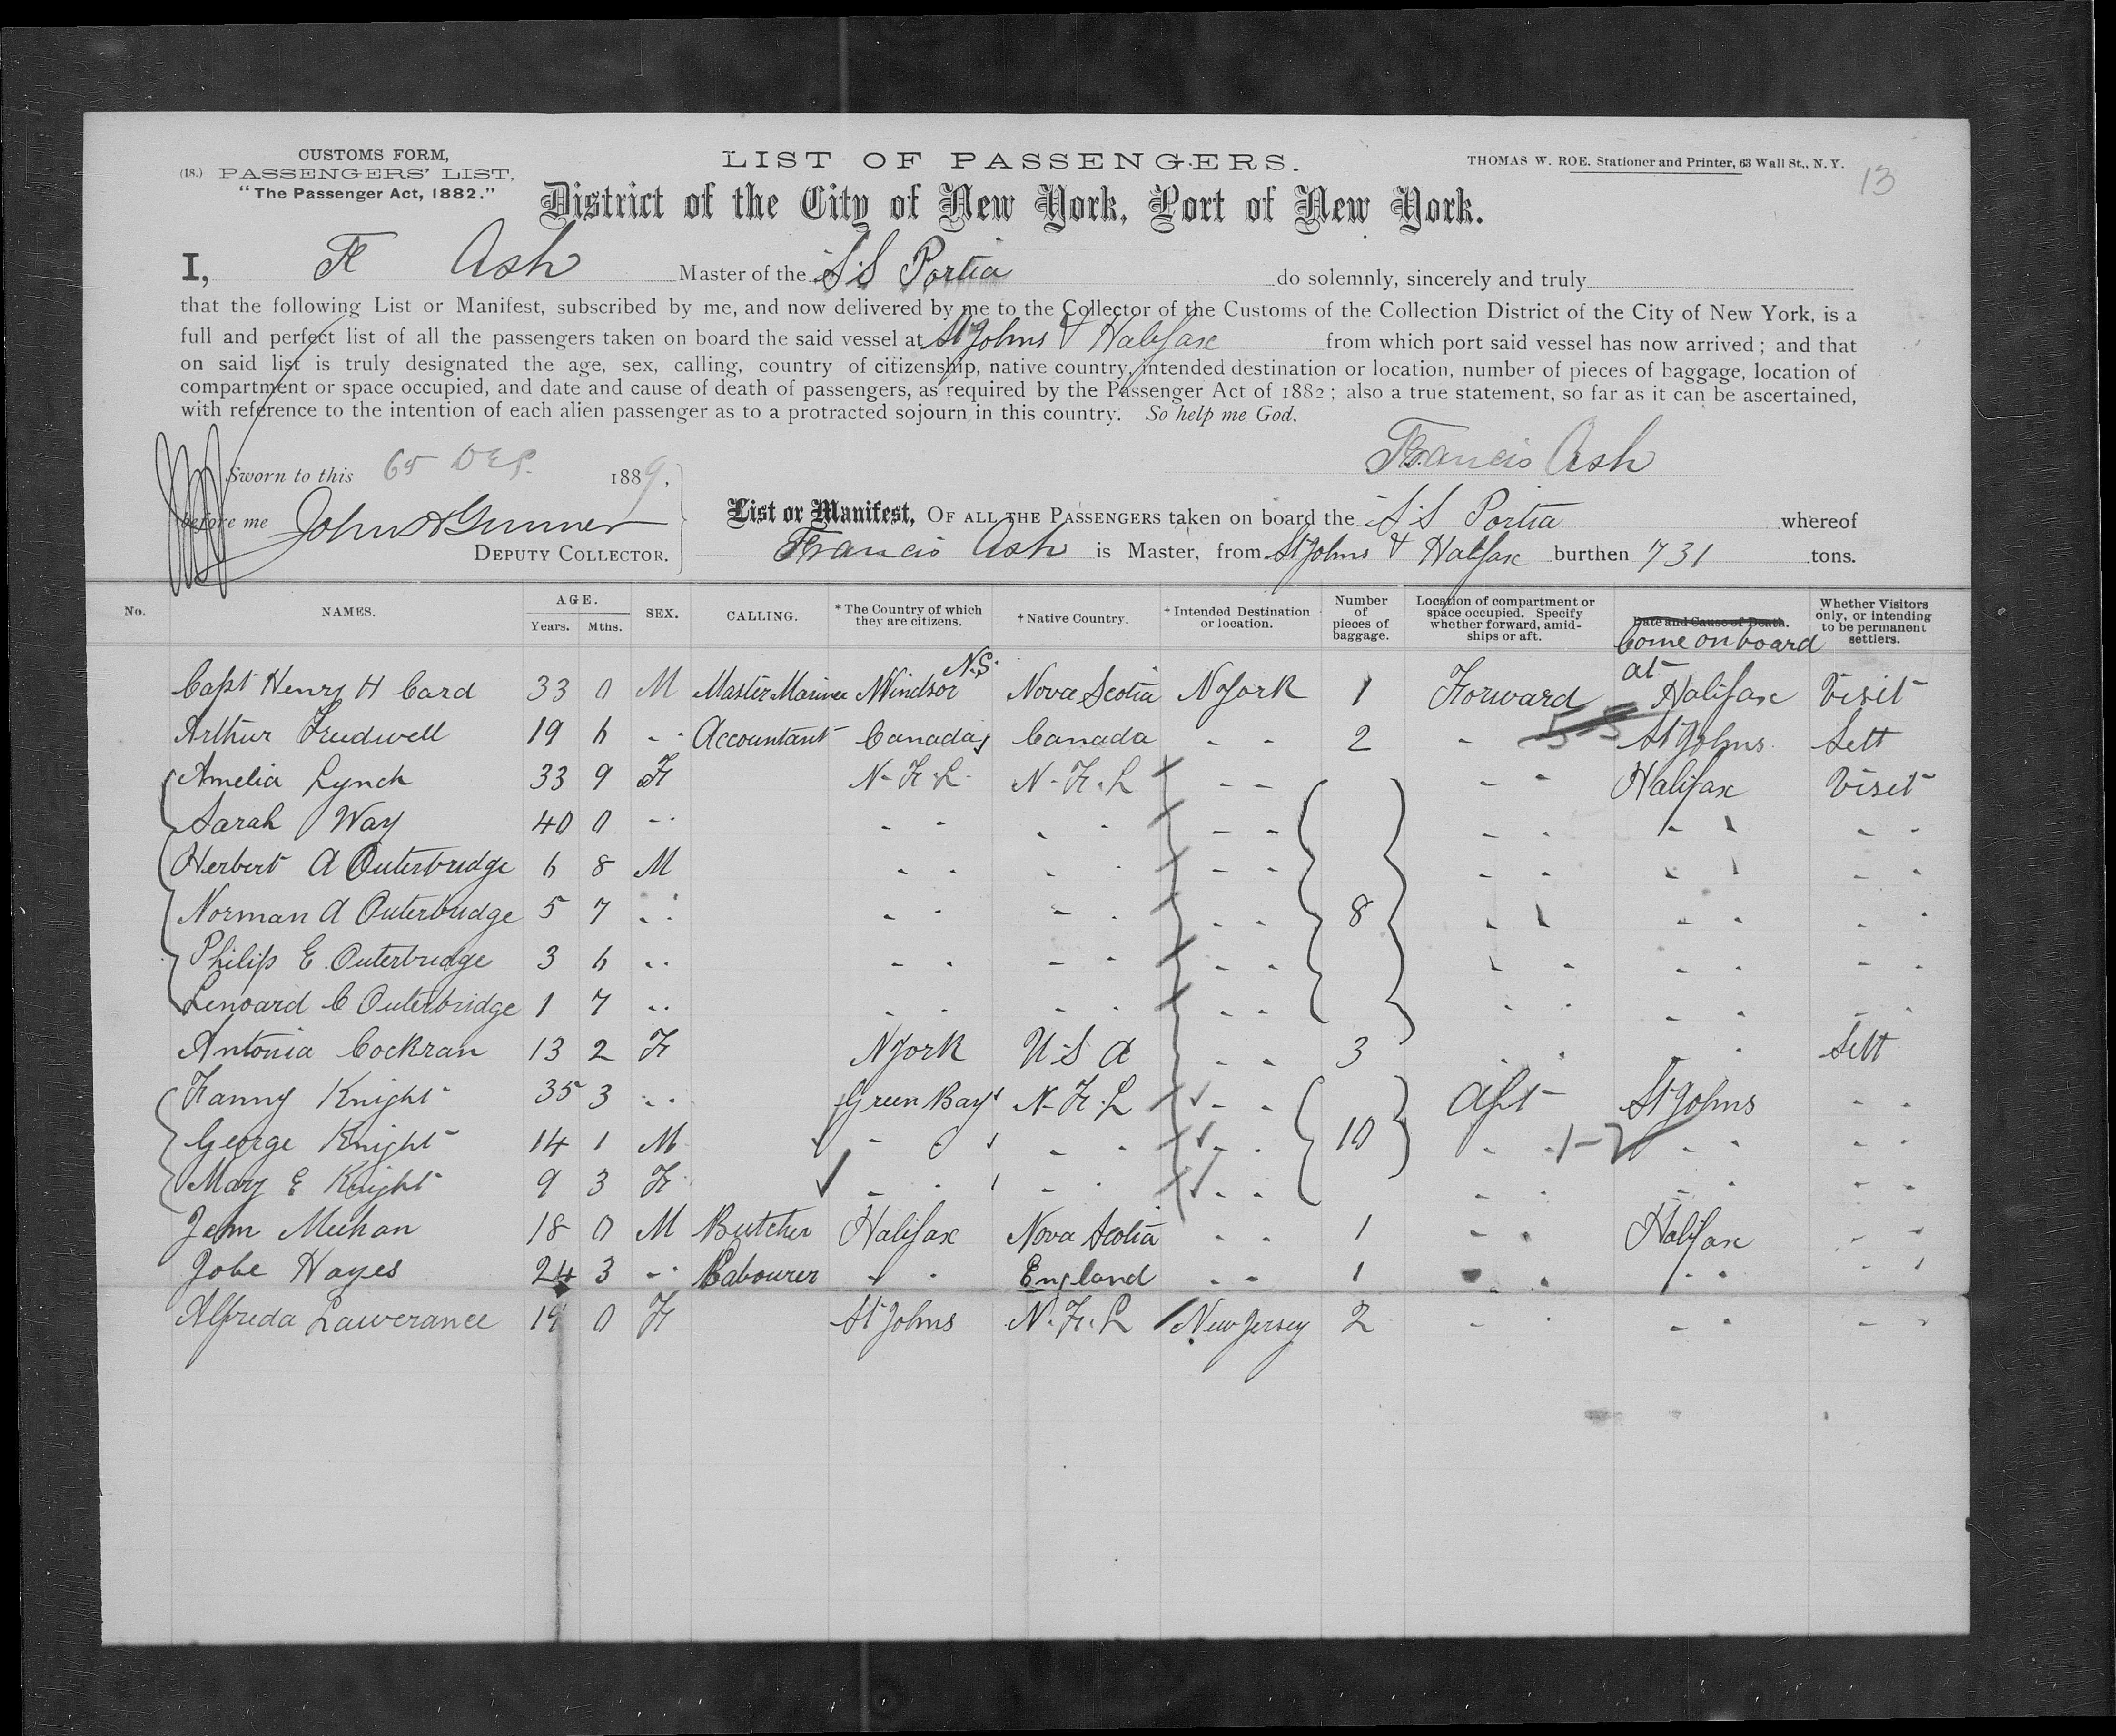 CUSTOMS FORM,
(18.) PASSENGERS' LIST,
"The Passenger Act, 1882."
LIST OF PASSENGERS.
THOMAS W. ROE, Stationer and Printer, 63 Wall St., N.Y.
13
District of the City of New York, Port of New York.
I, F Ash Master of the S.S Portia do solemnly, sincerely and truly
that the following List or Manifest, subscribed by me, and now delivered by me to the Collector of the Customs of the Collection District of the City of New York, is a
full and perfect list of all the passengers taken on board the said vessel at St Johns & Halifax from which port said vessel has now arrived; and that
on said list is truly designated the age, sex, calling, country of citizenship, native country, intended destination or location, number of pieces of baggage, location of
compartment or space occupied, and date and cause of death of passengers, as required by the Passenger Act of 1882; also a true statement, so far as it can be ascertained,
with reference to the intention of each alien passenger as to a protracted sojourn in this country. So help me God.
Francis Ash
Sworn to this 1889,
before me John Gunner
DEPUTY COLLECTOR.
List or Manifest, OF ALL THE PASSENGERS taken on board the S.S Portia whereof
Francis Ash is Master, from St Johns & Halifax burthen 731 tons.
No. NAMES. AGE. Years. Mths. SEX. CALLING. *The Country of which they are citizens. †Native Country. †Intended Destination or location. Number of pieces of baggage. Location of compartment or space occupied. Specify whether forward, amidships or aft. Date and Cause of Death. Come on board at Whether Visitors only, or intending to be permanent settlers.
Capt Henry H Card 33 0 M Master Mariner Windsor N.S. Nova Scotia N York 1 Forward Halifax Visit
Arthur Treadwell 19 6 - - Accountant Canada Canada - - 2 - 5-5 St Johns Sett
Amelia Lynch 33 9 F N-F.L N-F.L - - - - Halifax Visit
Sarah Way 40 0 - - - - - - - - - - - - - -
Herbert A Outerbridge 6 8 M - - - - - - - - - - - -
Norman A Outerbridge 5 7 - - - - - - - - 8 - - - - - -
Philip E Outerbridge 3 6 - - - - - - - - - - - - - -
Lenoard C Outerbridge 1 7 - - - - - - - - - - - - - -
Antonia Cockran 13 2 F N York U.S A - - 3 - - - - Sett
Fanny Knight 35 3 - - Green Bay N-F.L - - Aft St Johns - -
George Knight 14 1 M - - - - - - 10 - - 1-2 - - - -
Mary E Knight 9 3 F - - - - - - - - - - - -
Jem Meehan 18 0 M Butcher Halifax Nova Scotia - - 1 - - Halifax - -
Jobe Hayes 24 3 - - Labourer - - England - - 1 - - - - - -
Alfreda Lawerance 19 0 F St Johns N.F.L New Jersey 2 - - - - - -